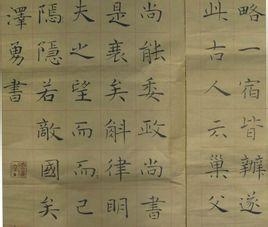 略一宿皆辦遂
此古人云巢父
尚能委政尚書
是衰矣斛律明
夫之望而而已
隱若敵國矣
澤勇書